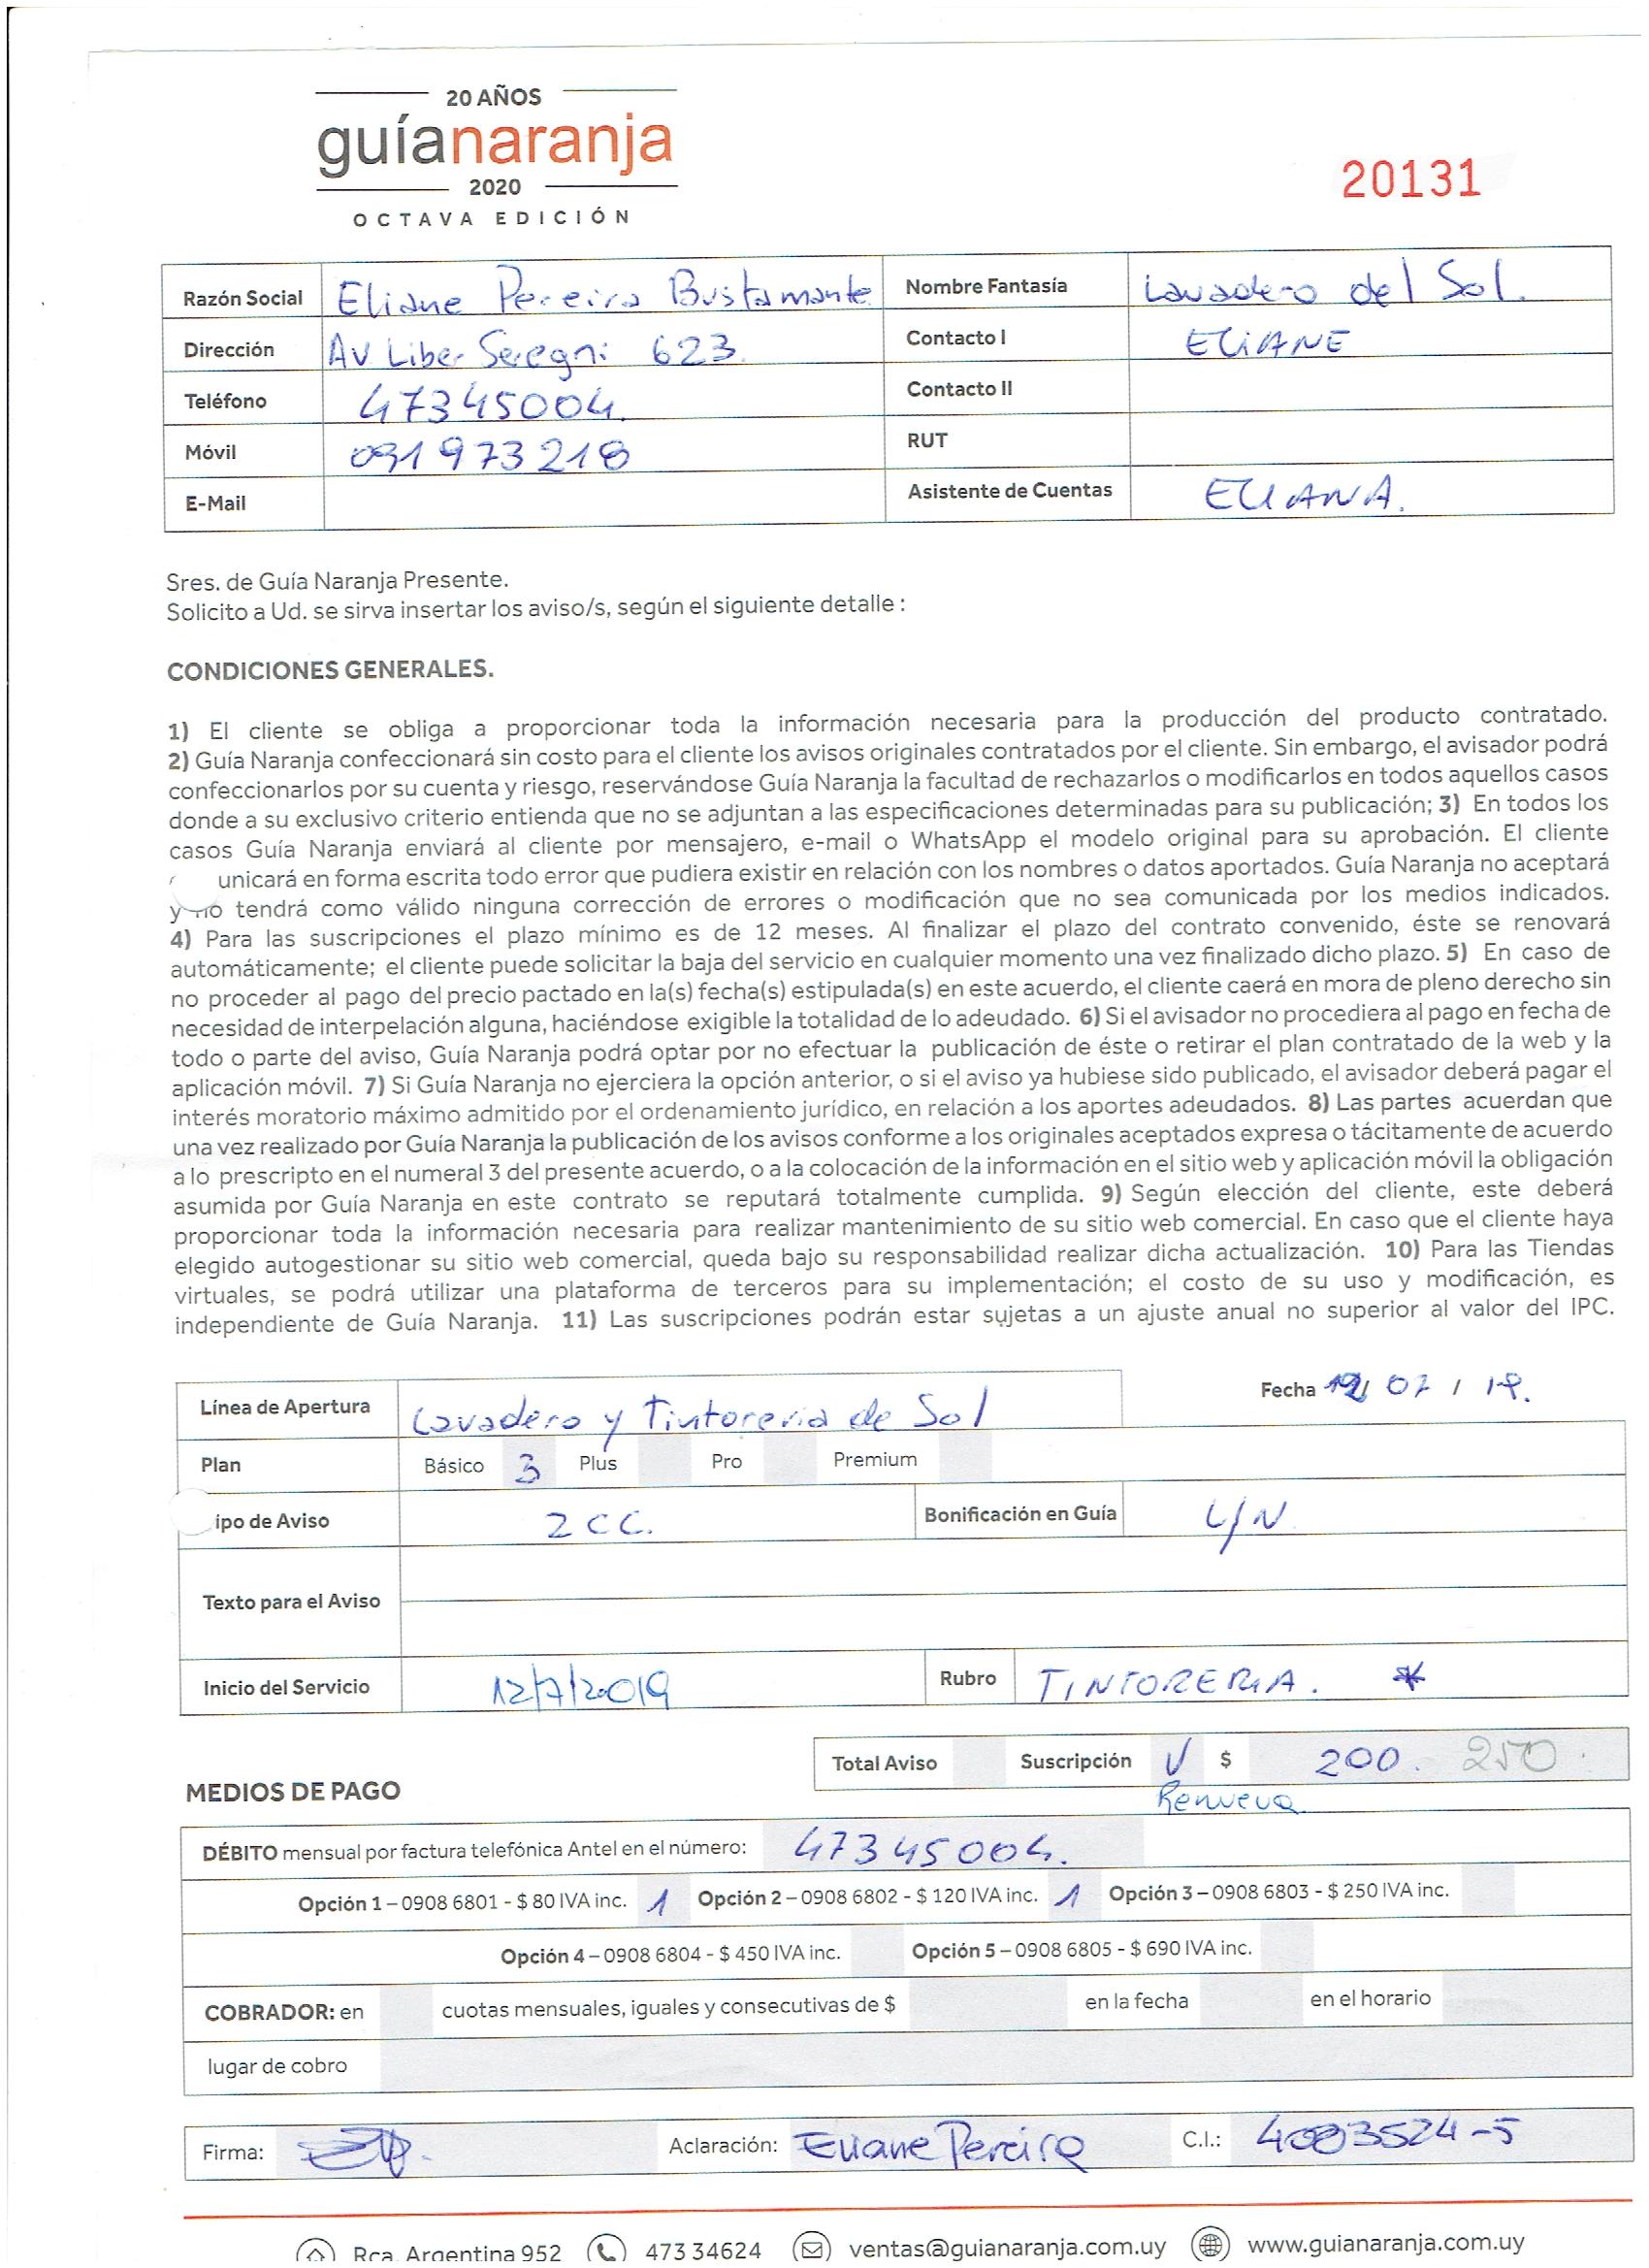 20 AÑOS
guíanaranja
2020
OCTAVA EDICIÓN
20131
Razón Social Eliane Pereira Bustamante Nombre Fantasía Lavadero del Sol.
Dirección Av Liber Seregni 623. Contacto I ELIANE
Teléfono 47345004. Contacto II
Móvil 091973218 RUT
E-Mail Asistente de Cuentas ELIANA.
Sres. de Guía Naranja Presente.
Solicito a Ud. se sirva insertar los aviso/s, según el siguiente detalle :
CONDICIONES GENERALES.
1) El cliente se obliga a proporcionar toda la información necesaria para la producción del producto contratado.
2) Guía Naranja confeccionará sin costo para el cliente los avisos originales contratados por el cliente. Sin embargo, el avisador podrá
confeccionarlos por su cuenta y riesgo, reservándose Guía Naranja la facultad de rechazarlos o modificarlos en todos aquellos casos
donde a su exclusivo criterio entienda que no se adjuntan a las especificaciones determinadas para su publicación; 3) En todos los
casos Guía Naranja enviará al cliente por mensajero, e-mail o WhatsApp el modelo original para su aprobación. El cliente
unicará en forma escrita todo error que pudiera existir en relación con los nombres o datos aportados. Guía Naranja no aceptará
y no tendrá como válido ninguna corrección de errores o modificación que no sea comunicada por los medios indicados.
4) Para las suscripciones el plazo mínimo es de 12 meses. Al finalizar el plazo del contrato convenido, éste se renovará
automáticamente; el cliente puede solicitar la baja del servicio en cualquier momento una vez finalizado dicho plazo. 5) En caso de
no proceder al pago del precio pactado en la(s) fecha(s) estipulada(s) en este acuerdo, el cliente caerá en mora de pleno derecho sin
necesidad de interpelación alguna, haciéndose exigible la totalidad de lo adeudado. 6) Si el avisador no procediera al pago en fecha de
todo o parte del aviso, Guía Naranja podrá optar por no efectuar la publicación de éste o retirar el plan contratado de la web y la
aplicación móvil. 7) Si Guía Naranja no ejerciera la opción anterior, o si el aviso ya hubiese sido publicado, el avisador deberá pagar el
interés moratorio máximo admitido por el ordenamiento jurídico, en relación a los aportes adeudados. 8) Las partes acuerdan que
una vez realizado por Guía Naranja la publicación de los avisos conforme a los originales aceptados expresa o tácitamente de acuerdo
a lo prescripto en el numeral 3 del presente acuerdo, o a la colocación de la información en el sitio web y aplicación móvil la obligación
asumida por Guía Naranja en este contrato se reputará totalmente cumplida. 9) Según elección del cliente, este deberá
proporcionar toda la información necesaria para realizar mantenimiento de su sitio web comercial. En caso que el cliente haya
elegido autogestionar su sitio web comercial, queda bajo su responsabilidad realizar dicha actualización. 10) Para las Tiendas
virtuales, se podrá utilizar una plataforma de terceros para su implementación; el costo de su uso y modificación, es
independiente de Guía Naranja. 11) Las suscripciones podrán estar sujetas a un ajuste anual no superior al valor del IPC.
Línea de Apertura Lavadero y Tintoreria de Sol Fecha 12/ 07 / 19.
Plan Básico 3 Plus Pro Premium
ipo de Aviso 2 CC. Bonificación en Guía L/N
Texto para el Aviso
Inicio del Servicio 12/7/2019 Rubro TINTORERIA. *
Total Aviso Suscripción V $ 200. 250.
Renueva
MEDIOS DE PAGO
DÉBITO mensual por factura telefónica Antel en el número: 47345004.
Opción 1 – 0908 6801 - $ 80 IVA inc. 1 Opción 2 – 0908 6802 - $ 120 IVA inc. 1 Opción 3 – 0908 6803 - $ 250 IVA inc.
Opción 4 – 0908 6804 - $ 450 IVA inc. Opción 5 – 0908 6805 - $ 690 IVA inc.
COBRADOR: en cuotas mensuales, iguales y consecutivas de $ en la fecha en el horario
lugar de cobro
Firma: Aclaración: Eliane Pereira C.I.: 4003524-5
Rca. Argentina 952 473 34624 ventas@guianaranja.com.uy www.guianaranja.com.uy